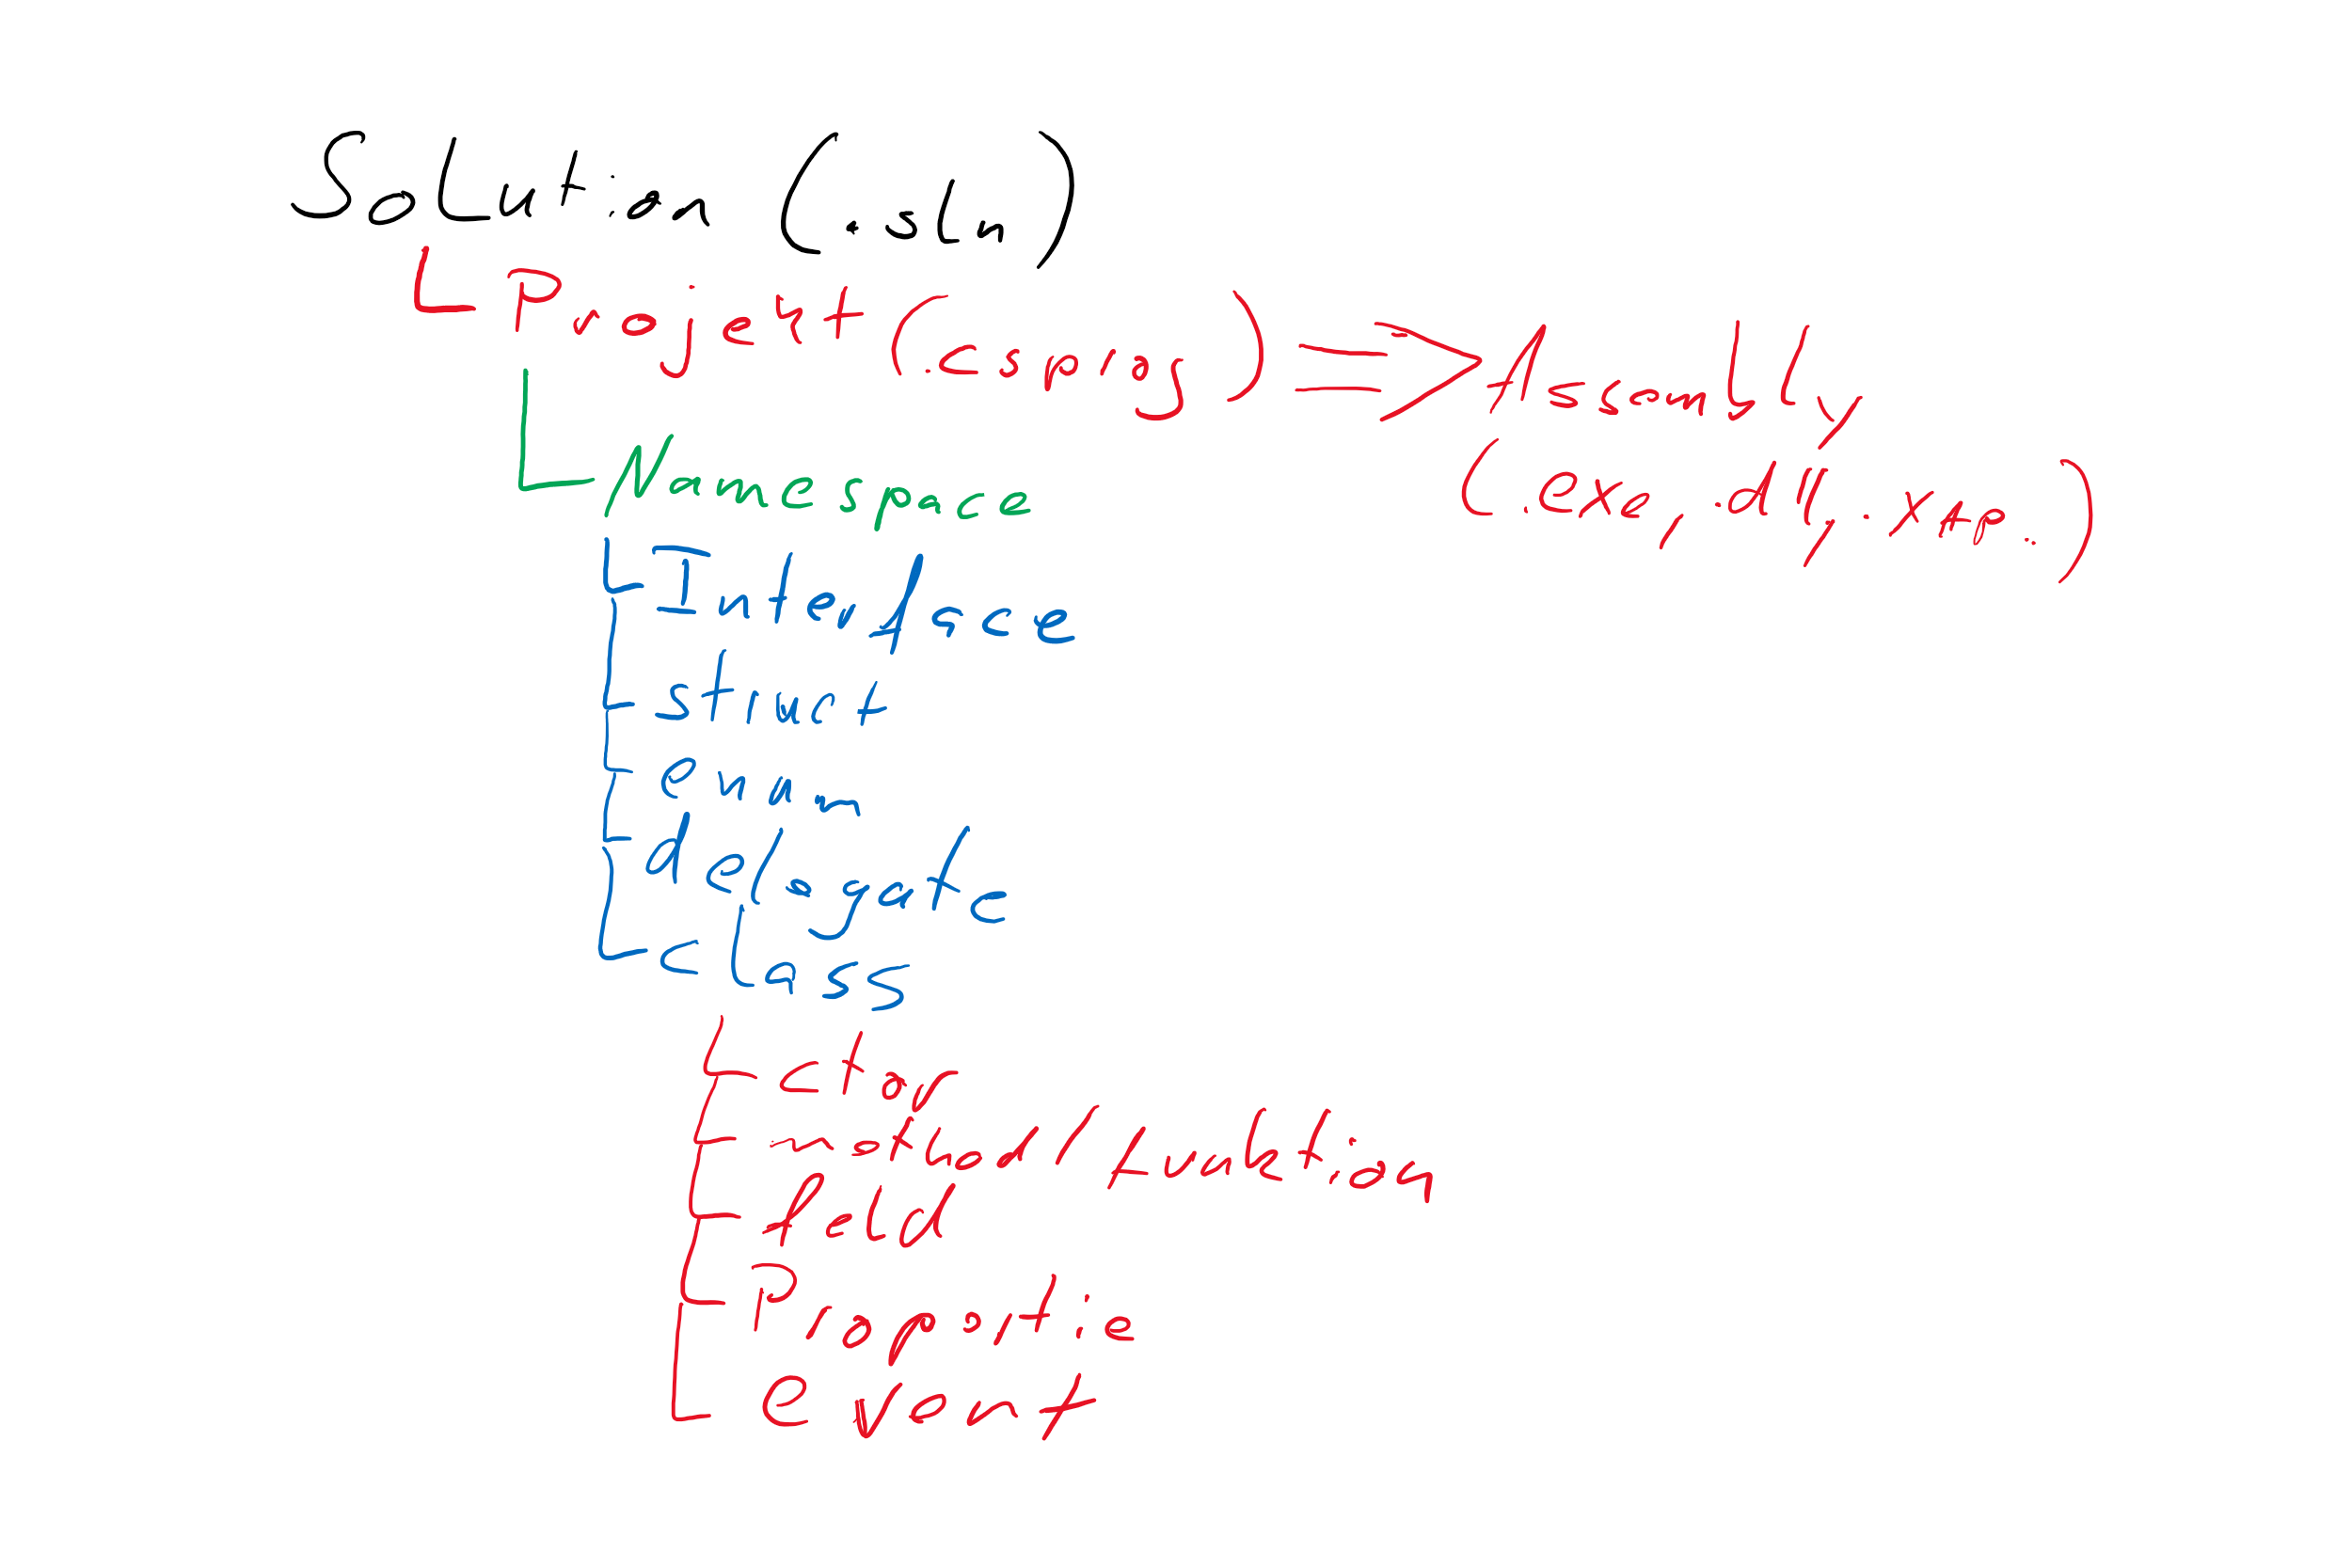 Solution (.sln)
Projekt (.csproj) => Assembly
(.exe, .dll, .xap..)
Namespace
Interface
struct
enum
delegate
class
ctor
method/funktion
field
Propertie
event